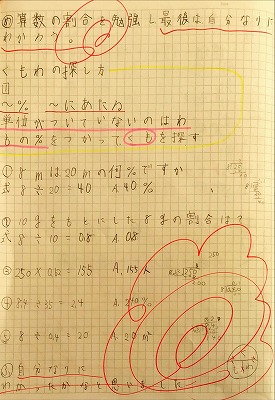 め 算数の割合を勉強し最後は自分なりに
わかわう。
くもわの探し方
〜% 〜にあたる
単位がついていないのはわ
もの%をつかってくもを探す
① 8mは20mの何%ですか
式 8÷20=40 A.40%
① 10gをもとにした8gの割合は?
式 8÷10=0.8 A.0.8
③ 250×0.62=155 A.155人
④ 8.4÷3.5=2.4 A.240%
⑤ 8÷0.4=20 A.20m²
自分なりに
わかったかなと思いました
250